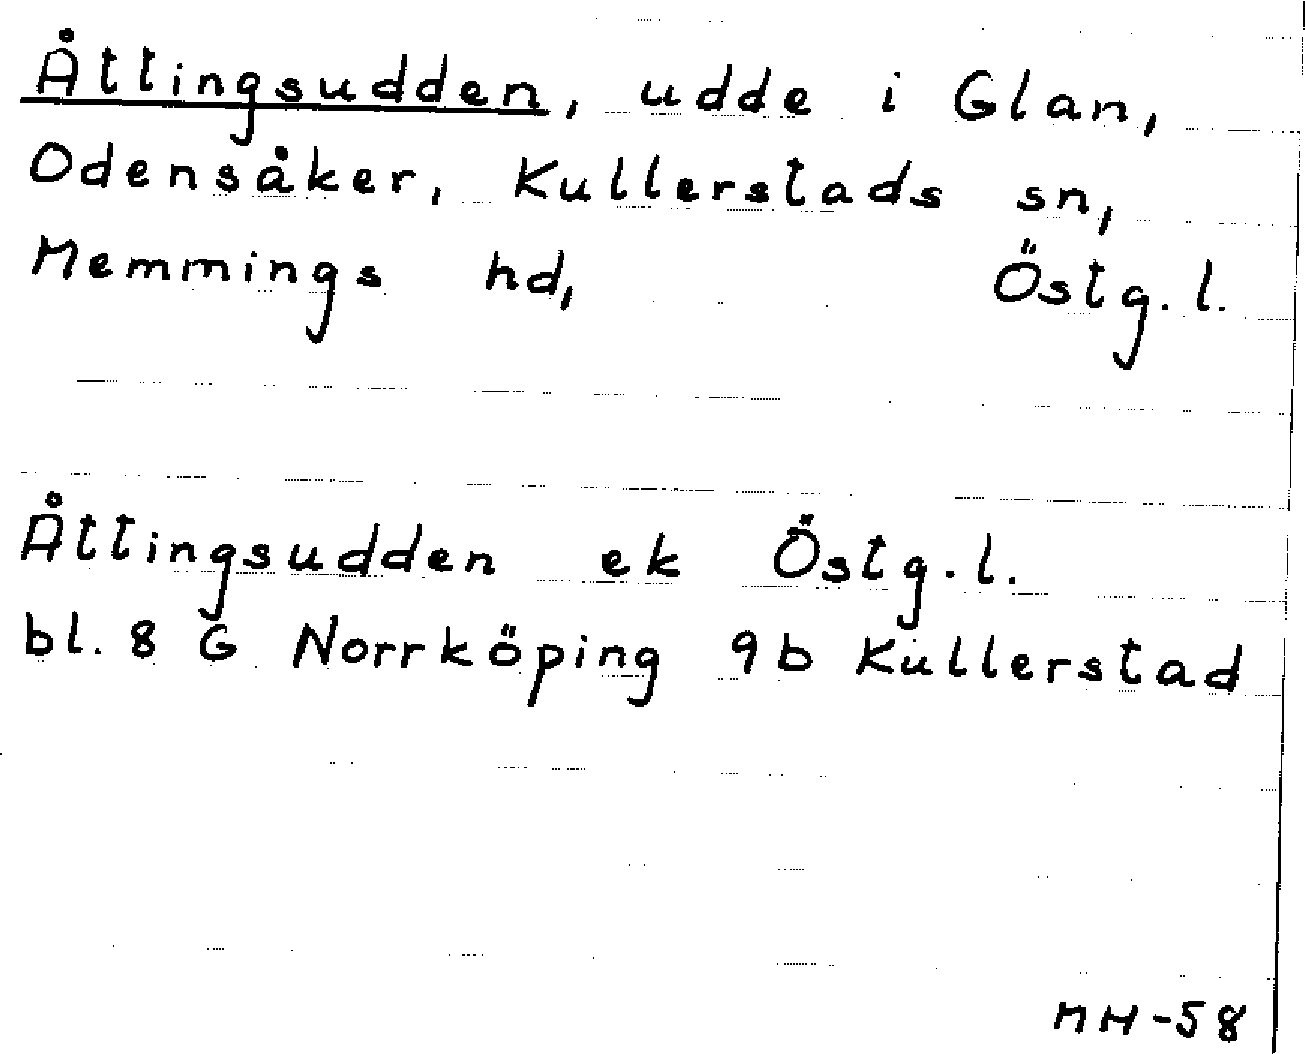 Åttingsudden, udde i Glan,
Odensåker, Kullerstads sn,
Memmings hd, Östg. l.
Åttingsudden ek Östg. l.
bl. 8 G Norrköping 9b Kullerstad
MH-58